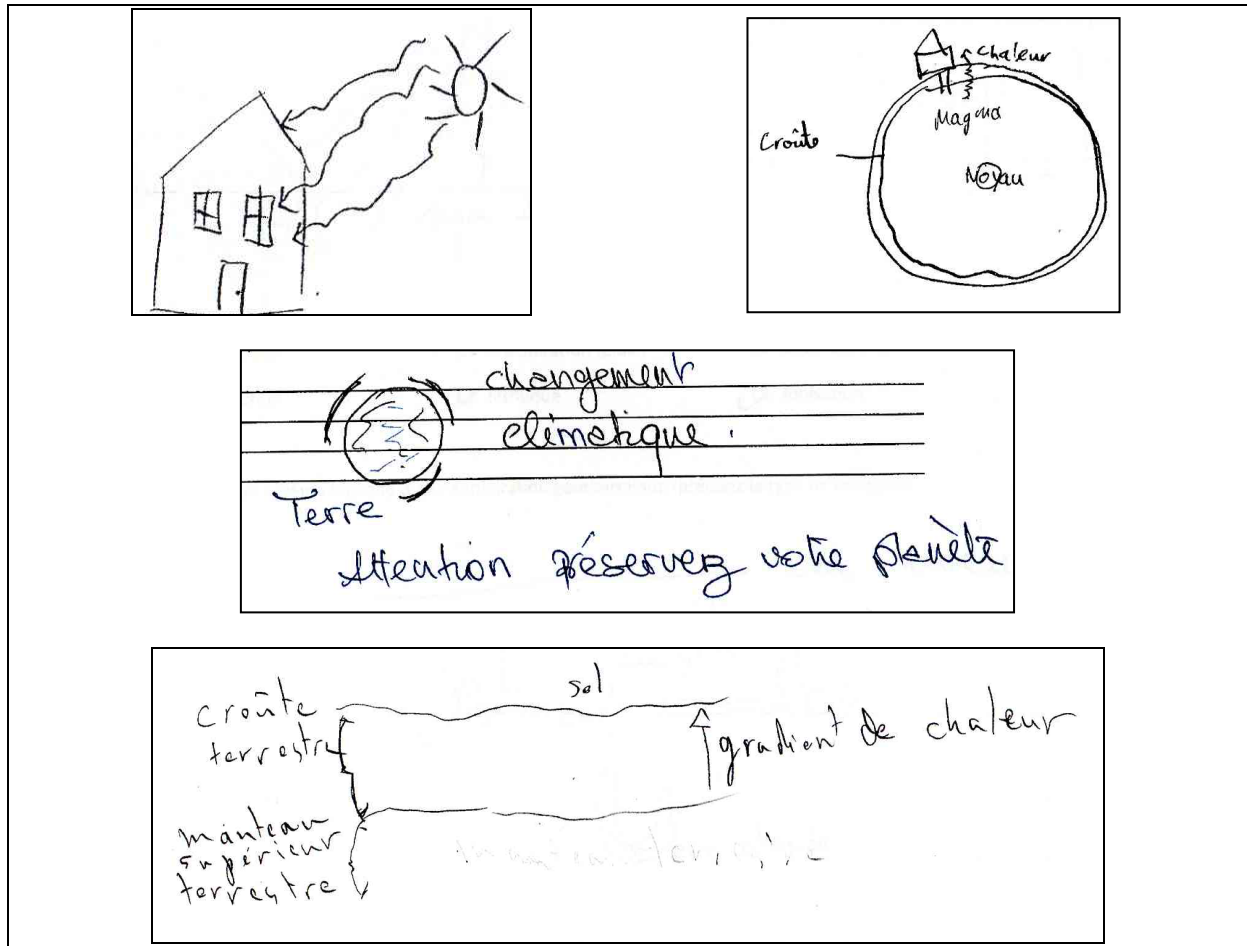 chaleur
Magma
Croûte
Noyau
changement
climatique.
Terre
Attention préservez votre planète
sol
croûte
terrestre
gradient de chaleur
manteau
supérieur
terrestre